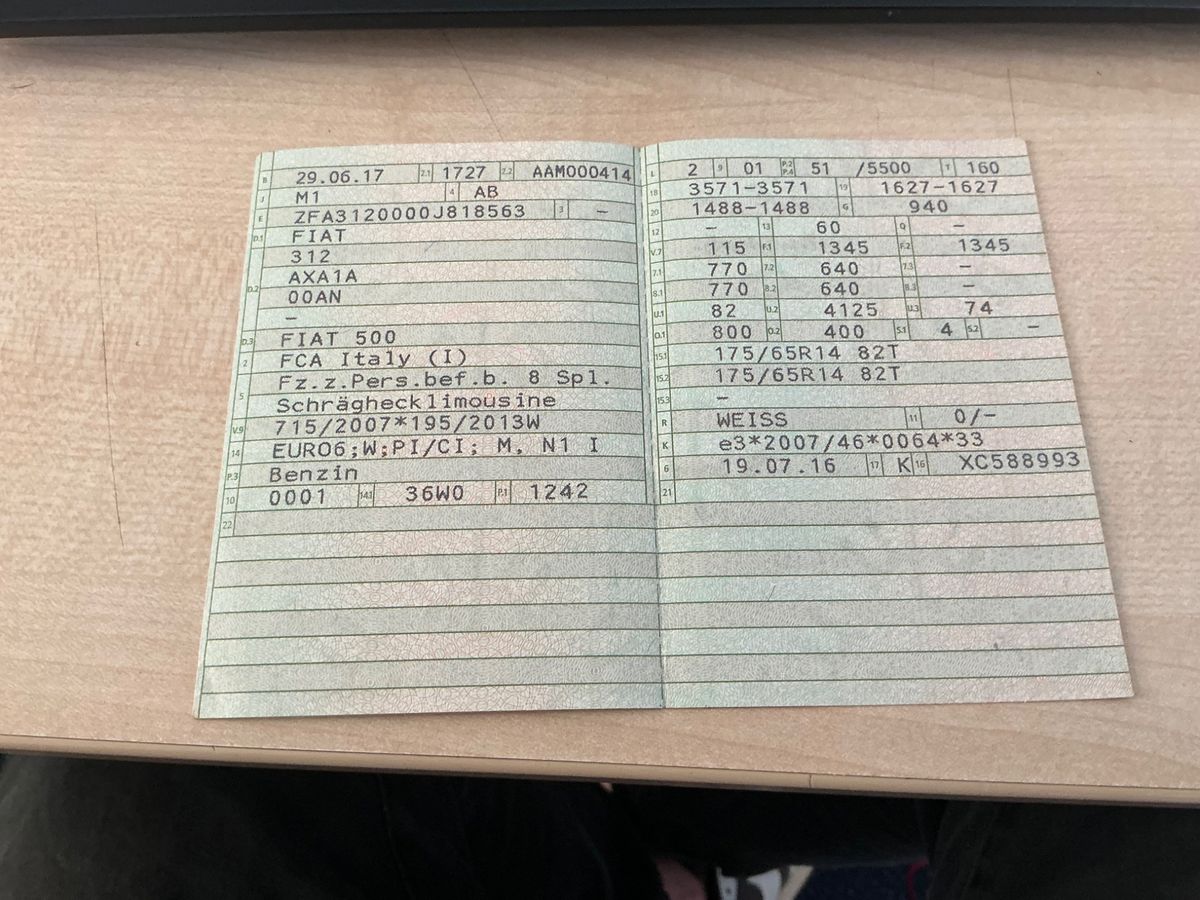 B 29.06.17 2.1 1727 2.2 AAM000414
J M1 4 AB
E ZFA3120000J818563 3 –
D.1 FIAT
312
D.2 AXA1A
00AN
–
D.3 FIAT 500
2 FCA Italy (I)
5 Fz.z.Pers.bef.b. 8 Spl.
Schräghecklimousine
V.9 715/2007*195/2013W
14 EURO6;W;PI/CI; M, N1 I
P.3 Benzin
10 0001 14.1 36W0 P.1 1242
22
L 2 9 01 P.2 P.4 51 /5500 T 160
18 3571–3571 19 1627–1627
20 1488–1488 G 940
12 – 13 60 Q –
V.7 115 F.1 1345 F.2 1345
7.1 770 7.2 640 7.3 –
8.1 770 8.2 640 8.3 –
U.1 82 U.2 4125 U.3 74
O.1 800 O.2 400 S.1 4 S.2 –
15.1 175/65R14 82T
15.2 175/65R14 82T
15.3 –
R WEISS 11 0/–
K e3*2007/46*0064*33
6 19.07.16 17 K 16 XC588993
21